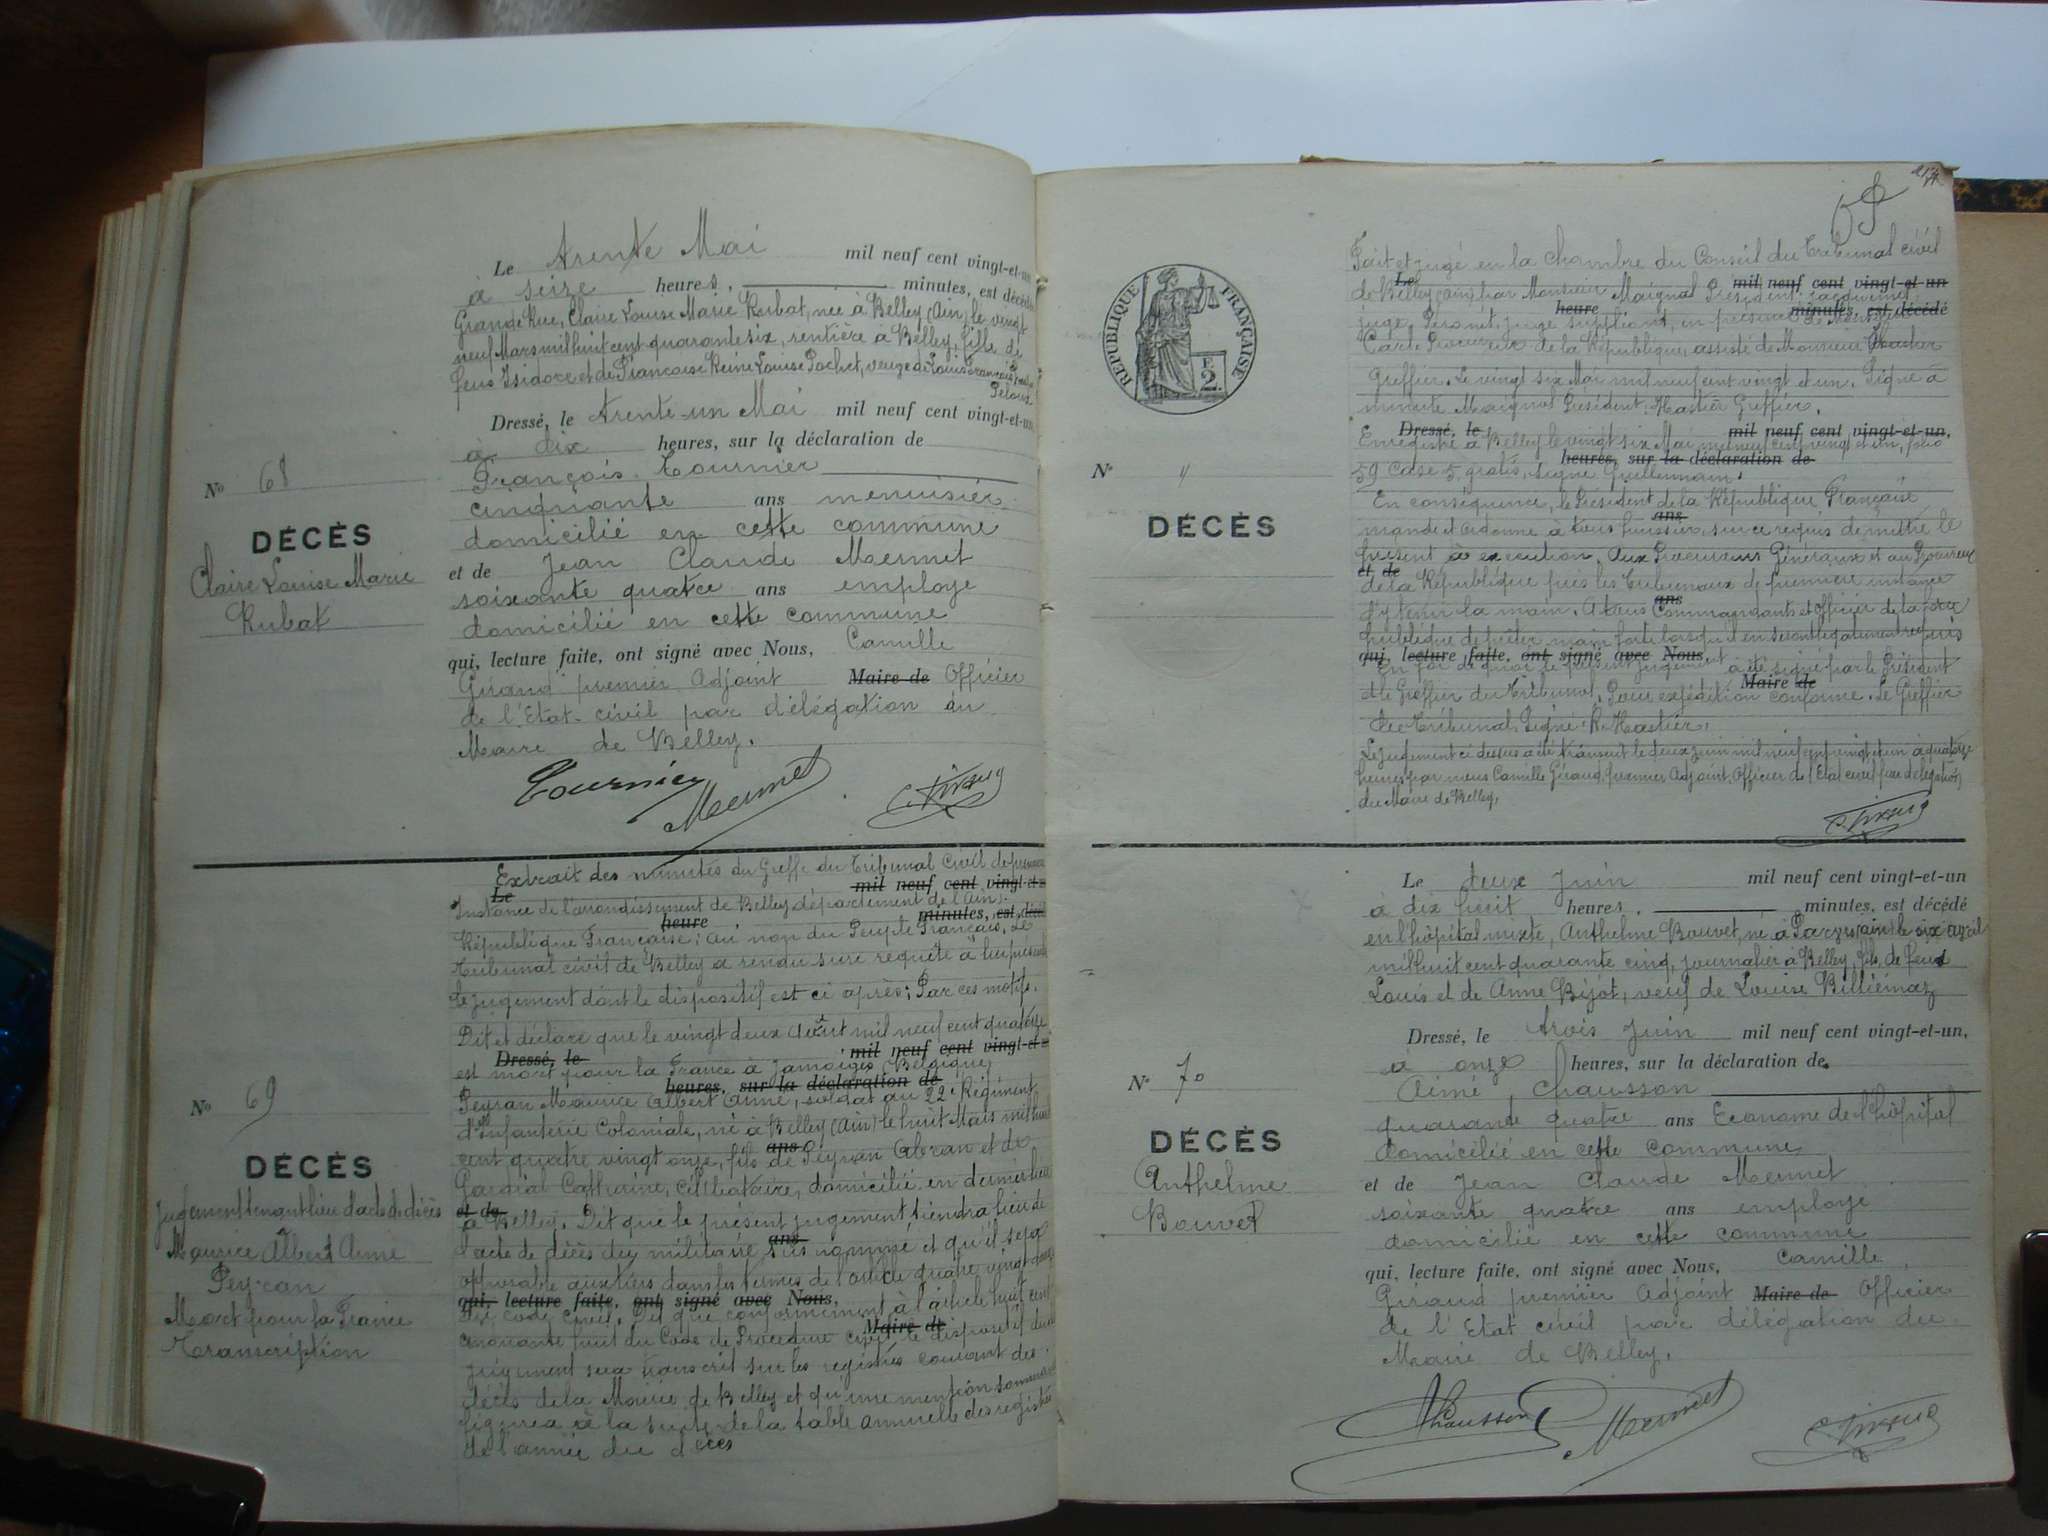 Le trente Mai mil neuf cent vingt-et-un
à seize heures, minutes, est décédée
Grande Rue, Claire Louise Marie Rubat, née à Belley (Ain) le vingt
neuf Mars mil huit cent quarante six, rentière à Belley, fille de
feus Isidore et de Françoise Reine Louise Pochet, veuve de Louis François
Peloux
Dressé, le trente-un Mai mil neuf cent vingt-et-un
à dix heures, sur la déclaration de
François Tournier
cinquante ans menuisier
domicilié en cette commune
et de Jean Claude Mermet
soixante quatre ans employé
domicilié en cette commune
qui, lecture faite, ont signé avec Nous, Camille
Giraud premier Adjoint Maire de Officier
de l'Etat-civil par délégation du
Maire de Belley.
Tournier Mermet C. Giraud
No 68
DÉCÈS
Claire Louise Marie
Rubat
Extrait des minutes du Greffe du Tribunal Civil de première
Le mil neuf cent vingt-et-un
Instance de l'arrondissement de Belley, département de l'Ain.
heure minutes, est décédé
République Française; Au nom du Peuple Français, Le
Tribunal civil de Belley a rendu sur requête à lui présentée
le jugement dont le dispositif est ci après; Par ces motifs.
Dit et déclare que le vingt deux Août mil neuf cent quatorze
Dressé, le mil neuf cent vingt-et-un
est mort pour la France à Jamoiges (Belgique)
heures, sur la déclaration de
Peyran Maurice Albert Aimé, soldat au 22e Régiment
d'Infanterie Coloniale, né à Belley (Ain) le huit Mars mil huit
ans
cent quatre vingt onze, fils de Peyran Abran et de
Gardiat Catherine, célibataire, domicilié en dernier lieu
et de
à Belley. Dit que le présent jugement tiendra lieu de
l'acte de décès du militaire sus nommé et qu'il sera
ans
opposable aux tiers dans les termes de l'article quatre vingt douze
qui, lecture faite, ont signé avec Nous,
du Code Civil. Dit que conformément à l'article huit cent
Maire de
cinquante huit du Code de Procédure civile le dispositif du dit
jugement sera transcrit sur les registres courant des
décès de la Mairie de Belley et qu'une mention sommaire
figurera à la suite de la table annuelle des registres
de l'année du décès
No 69
DÉCÈS
Jugement tenant lieu d'acte de décès
Maurice Albert Aimé
Peyran
Mort pour la France
Transcription
RÉPUBLIQUE FRANÇAISE
2F.
Fait et jugé en la Chambre du Conseil du Tribunal civil
Le mil neuf cent vingt-et-un
de Belley (Ain) par Monsieur Maignal Président, Jacquemet
heure minutes, est décédé
juge, Peronet, juge suppléant, en présence de Monsieur
Carle Procureur de la République, assisté de Monsieur Hastier
Greffier. Le vingt six Mai mil neuf cent vingt et un. Signé à
minute Maignal Président, Hastier Greffier.
Dressé, le mil neuf cent vingt-et-un,
Enregistré à Belley le vingt six Mai mil neuf cent vingt et un, folio
heures, sur la déclaration de
59 Case 5. gratis, signé Guillermain.
En conséquence, le Président de la République Française
ans
mande et ordonne à tous huissiers sur ce requis de mettre le
présent à exécution, Aux Procureurs Généraux et au Procureur
et de
de la République près les Tribunaux de première instance
ans
d'y tenir la main. A tous Commandants et officier de la force
publique de prêter main forte lorsqu'il en seront légalement requis
qui, lecture faite, ont signé avec Nous,
En foi de quoi le présent jugement a été signé par le Président
Maire de
et le Greffier du Tribunal, Pour expédition conforme. Le Greffier
du Tribunal, Signé R. Hastier.
Le jugement ci dessus a été transcrit le deux Juin mil neuf cent vingt et un à quatorze
heures par nous Camille Giraud, premier Adjoint, Officier de l'Etat civil par délégation
du Maire de Belley.
C. Giraud
No
DÉCÈS
Le deux Juin mil neuf cent vingt-et-un
à dix huit heures, minutes, est décédé
en l'hôpital mixte, Anthelme Bouvet, né à Parves (Ain) le six avril
mil huit cent quarante cinq, journalier à Belley, fils de feus
Louis et de Anne Bijot, veuf de Louise Billiémaz
Dressé, le trois Juin mil neuf cent vingt-et-un,
à onze heures, sur la déclaration de
Aimé Chausson
quarante quatre ans Econome de l'hôpital
domicilié en cette commune
et de Jean Claude Mermet
soixante quatre ans employé
domicilié en cette commune
qui, lecture faite, ont signé avec Nous, Camille
Giraud premier Adjoint Maire de Officier
de l'Etat civil par délégation du
Maire de Belley.
Chausson Mermet C. Giraud
No 70
DÉCÈS
Anthelme
Bouvet